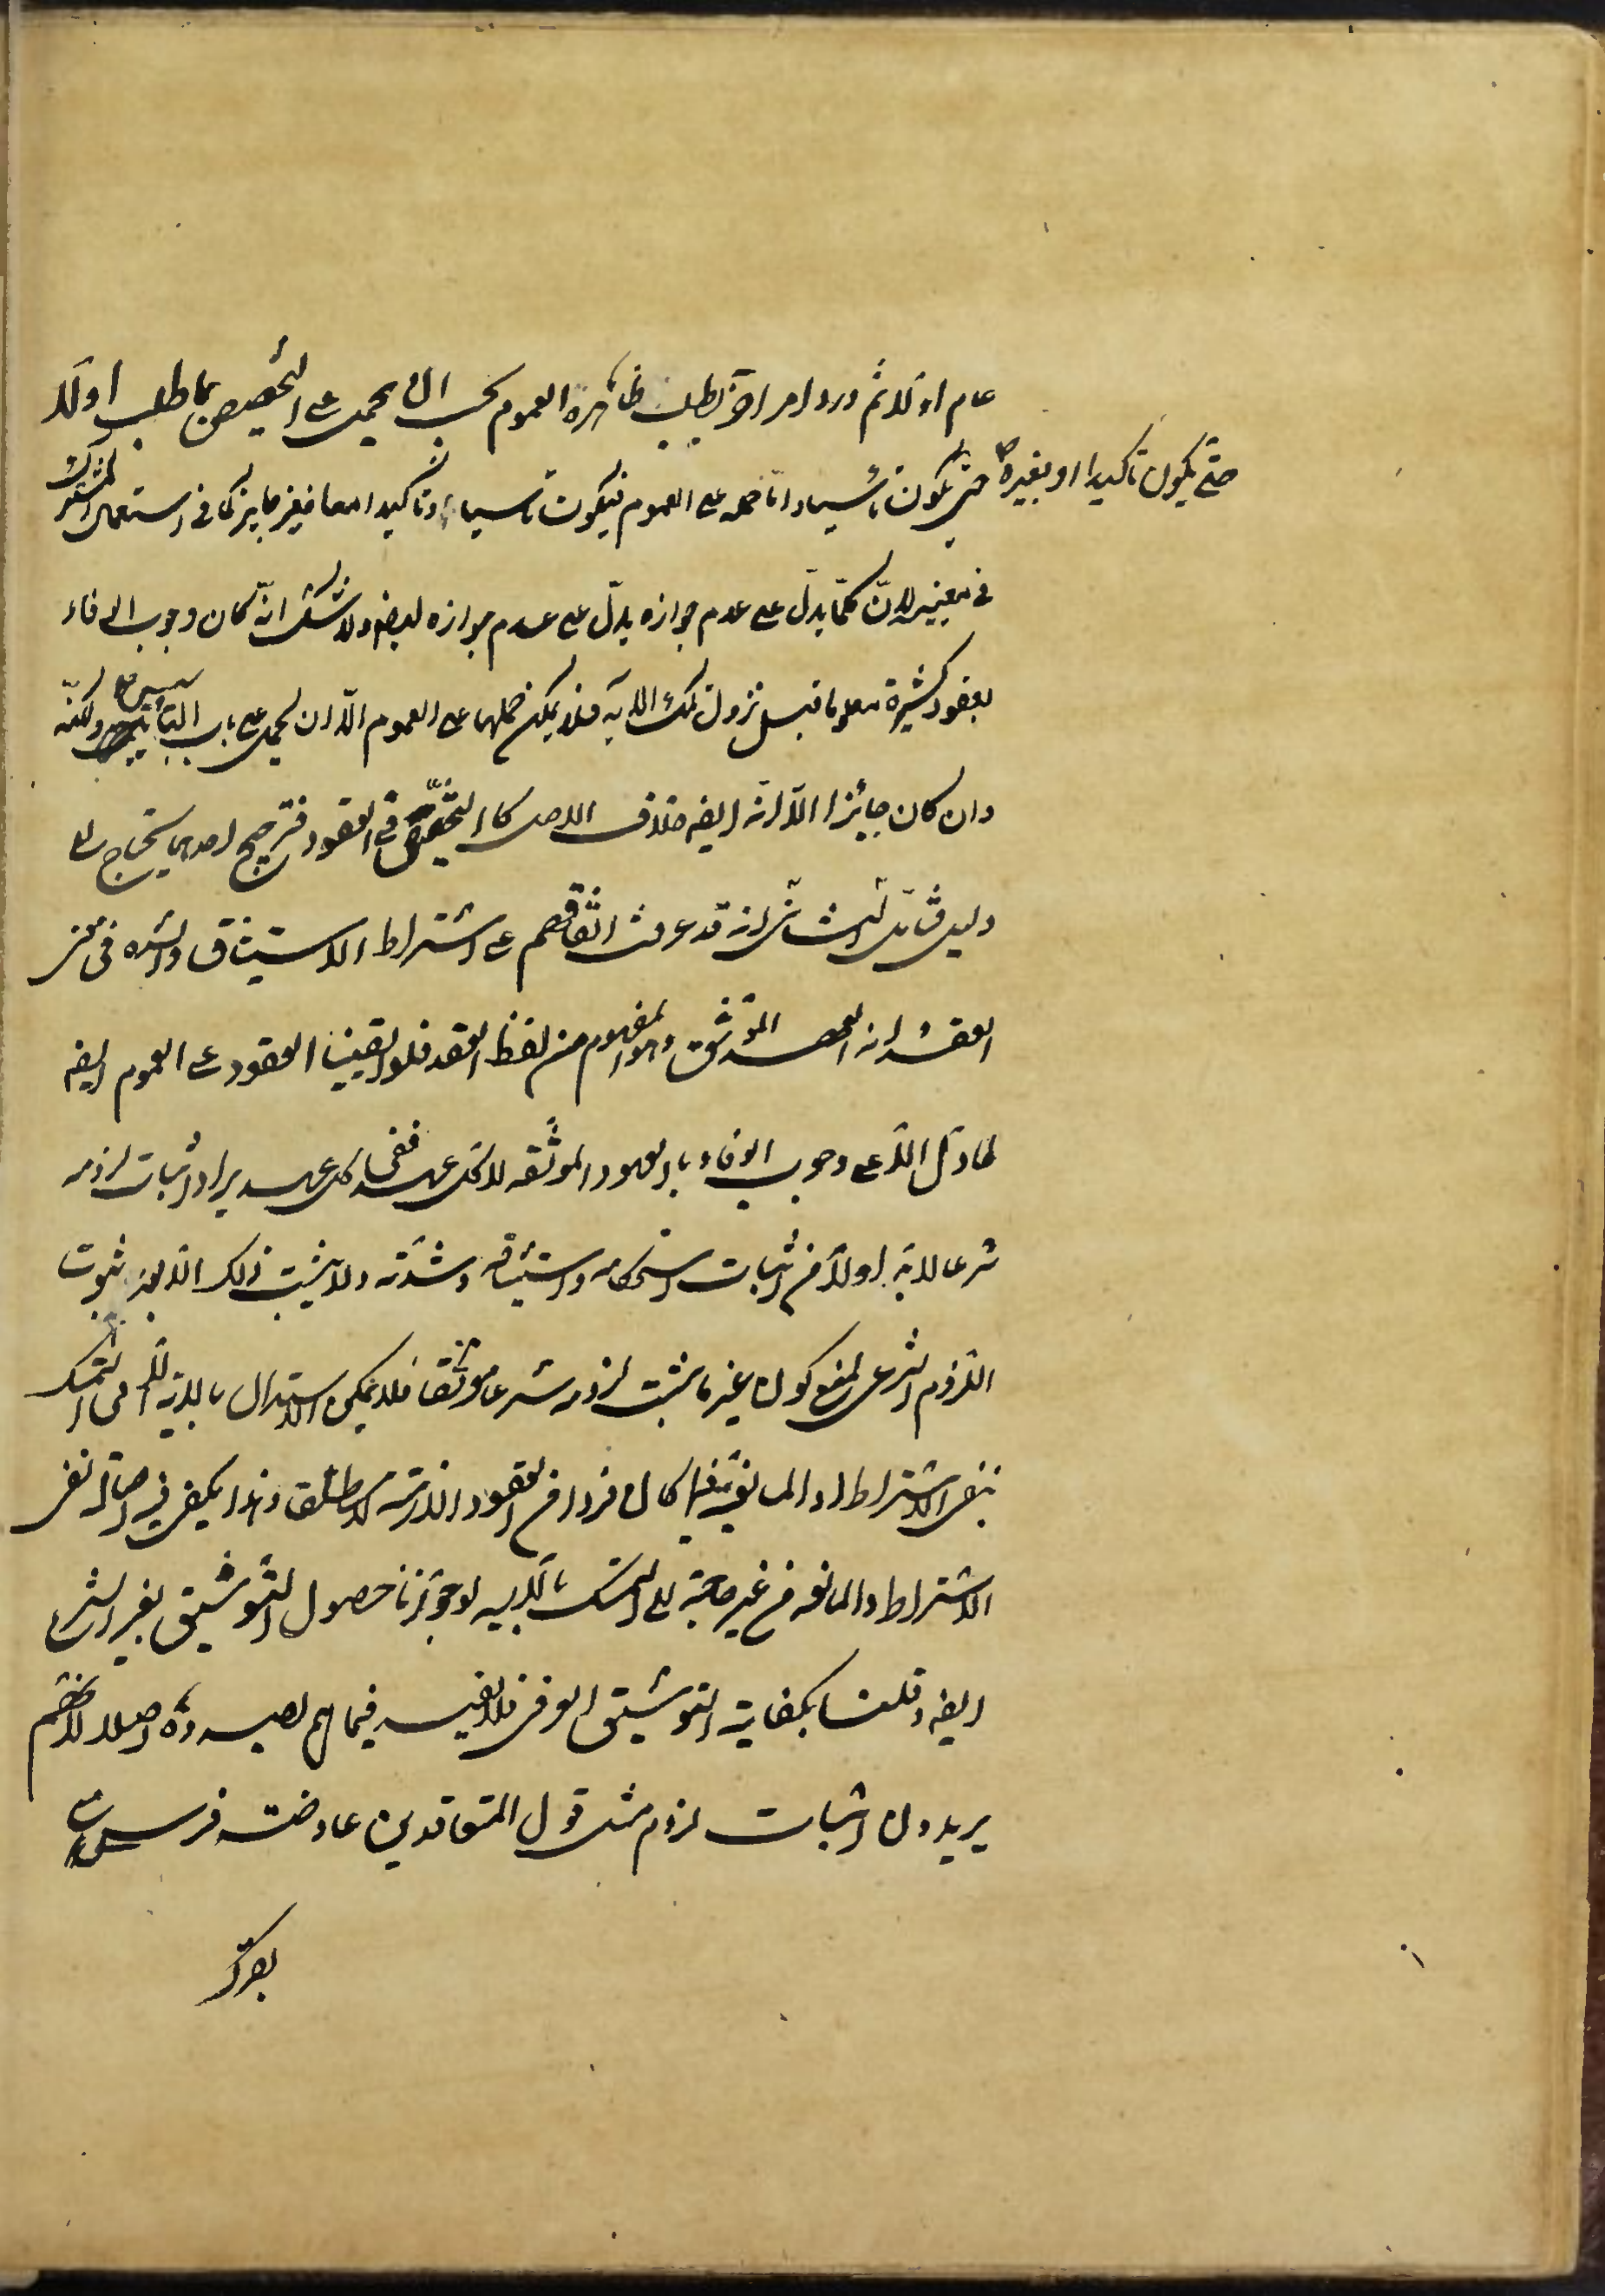 عام اولا ثم ورد امر اخر يطلب ظاهره العموم يجب ان يحمل على التخصيص بما طلب اولا
حتى يكون تاكيدا او بغيره حتى يكون تاسيسا واما حمله على العموم فيكون تاسيسا وتاكيدا معا فغير جايز كما فى استعمال المشترك
فى معنييه لان كلما يدل على عدم جوازه يدل على عدم جوازه ايضا ولا شك انه كان وجوب الوفاء
بعقود كثيرة معلوما قبل نزول تلك الاية فلا يمكن حملها على العموم الا ان يحمل على باب التاسيس ولكنه
وان كان جائزا الا انه ايضا خلاف الاصل كالتخصيص فى العقود فترجيح احدهما يحتاج الى
دليل فتامل الثانى انه قد عرفت اتفاقهم على اشتراط الاستيثاق والشدة فى معنى
العقد انه العهد الموثق وهو المفهوم من لفظ العقد فلو ابقينا العقود على العموم ايضا
لما دل الا على وجوب الوفاء بالعهود الموثقه لا كل عهد ففى كل عهد يراد اثبات لزومه
شرعا لابد اولا من اثبات استحكامه واستيثاقه وشدته ولا يثبت ذلك الا بعد ثبوت
اللزوم الشرعى لمنع كون غير ما يثبت لزومه شرعا موثقا فلا يمكن الاستدلال بالاية الا فى التمسك
بنفى الاشتراط او المانعية فيما كان فردا من العقود اللازمة مطلقا وهذا يكفى فيه اصالة نفى
الاشتراط والمانعه من غير حاجة الى التمسك بالاية لو جوزنا حصول التوثيق بغير الشرع
ايضا وقلنا بكفاية التوثيق العرفى فلا يفيد فيما هم بصدده اصلا لانهم
يريدون اثبات لزوم مثل قول المتعاقدين عاوضت فرسى
بفرك